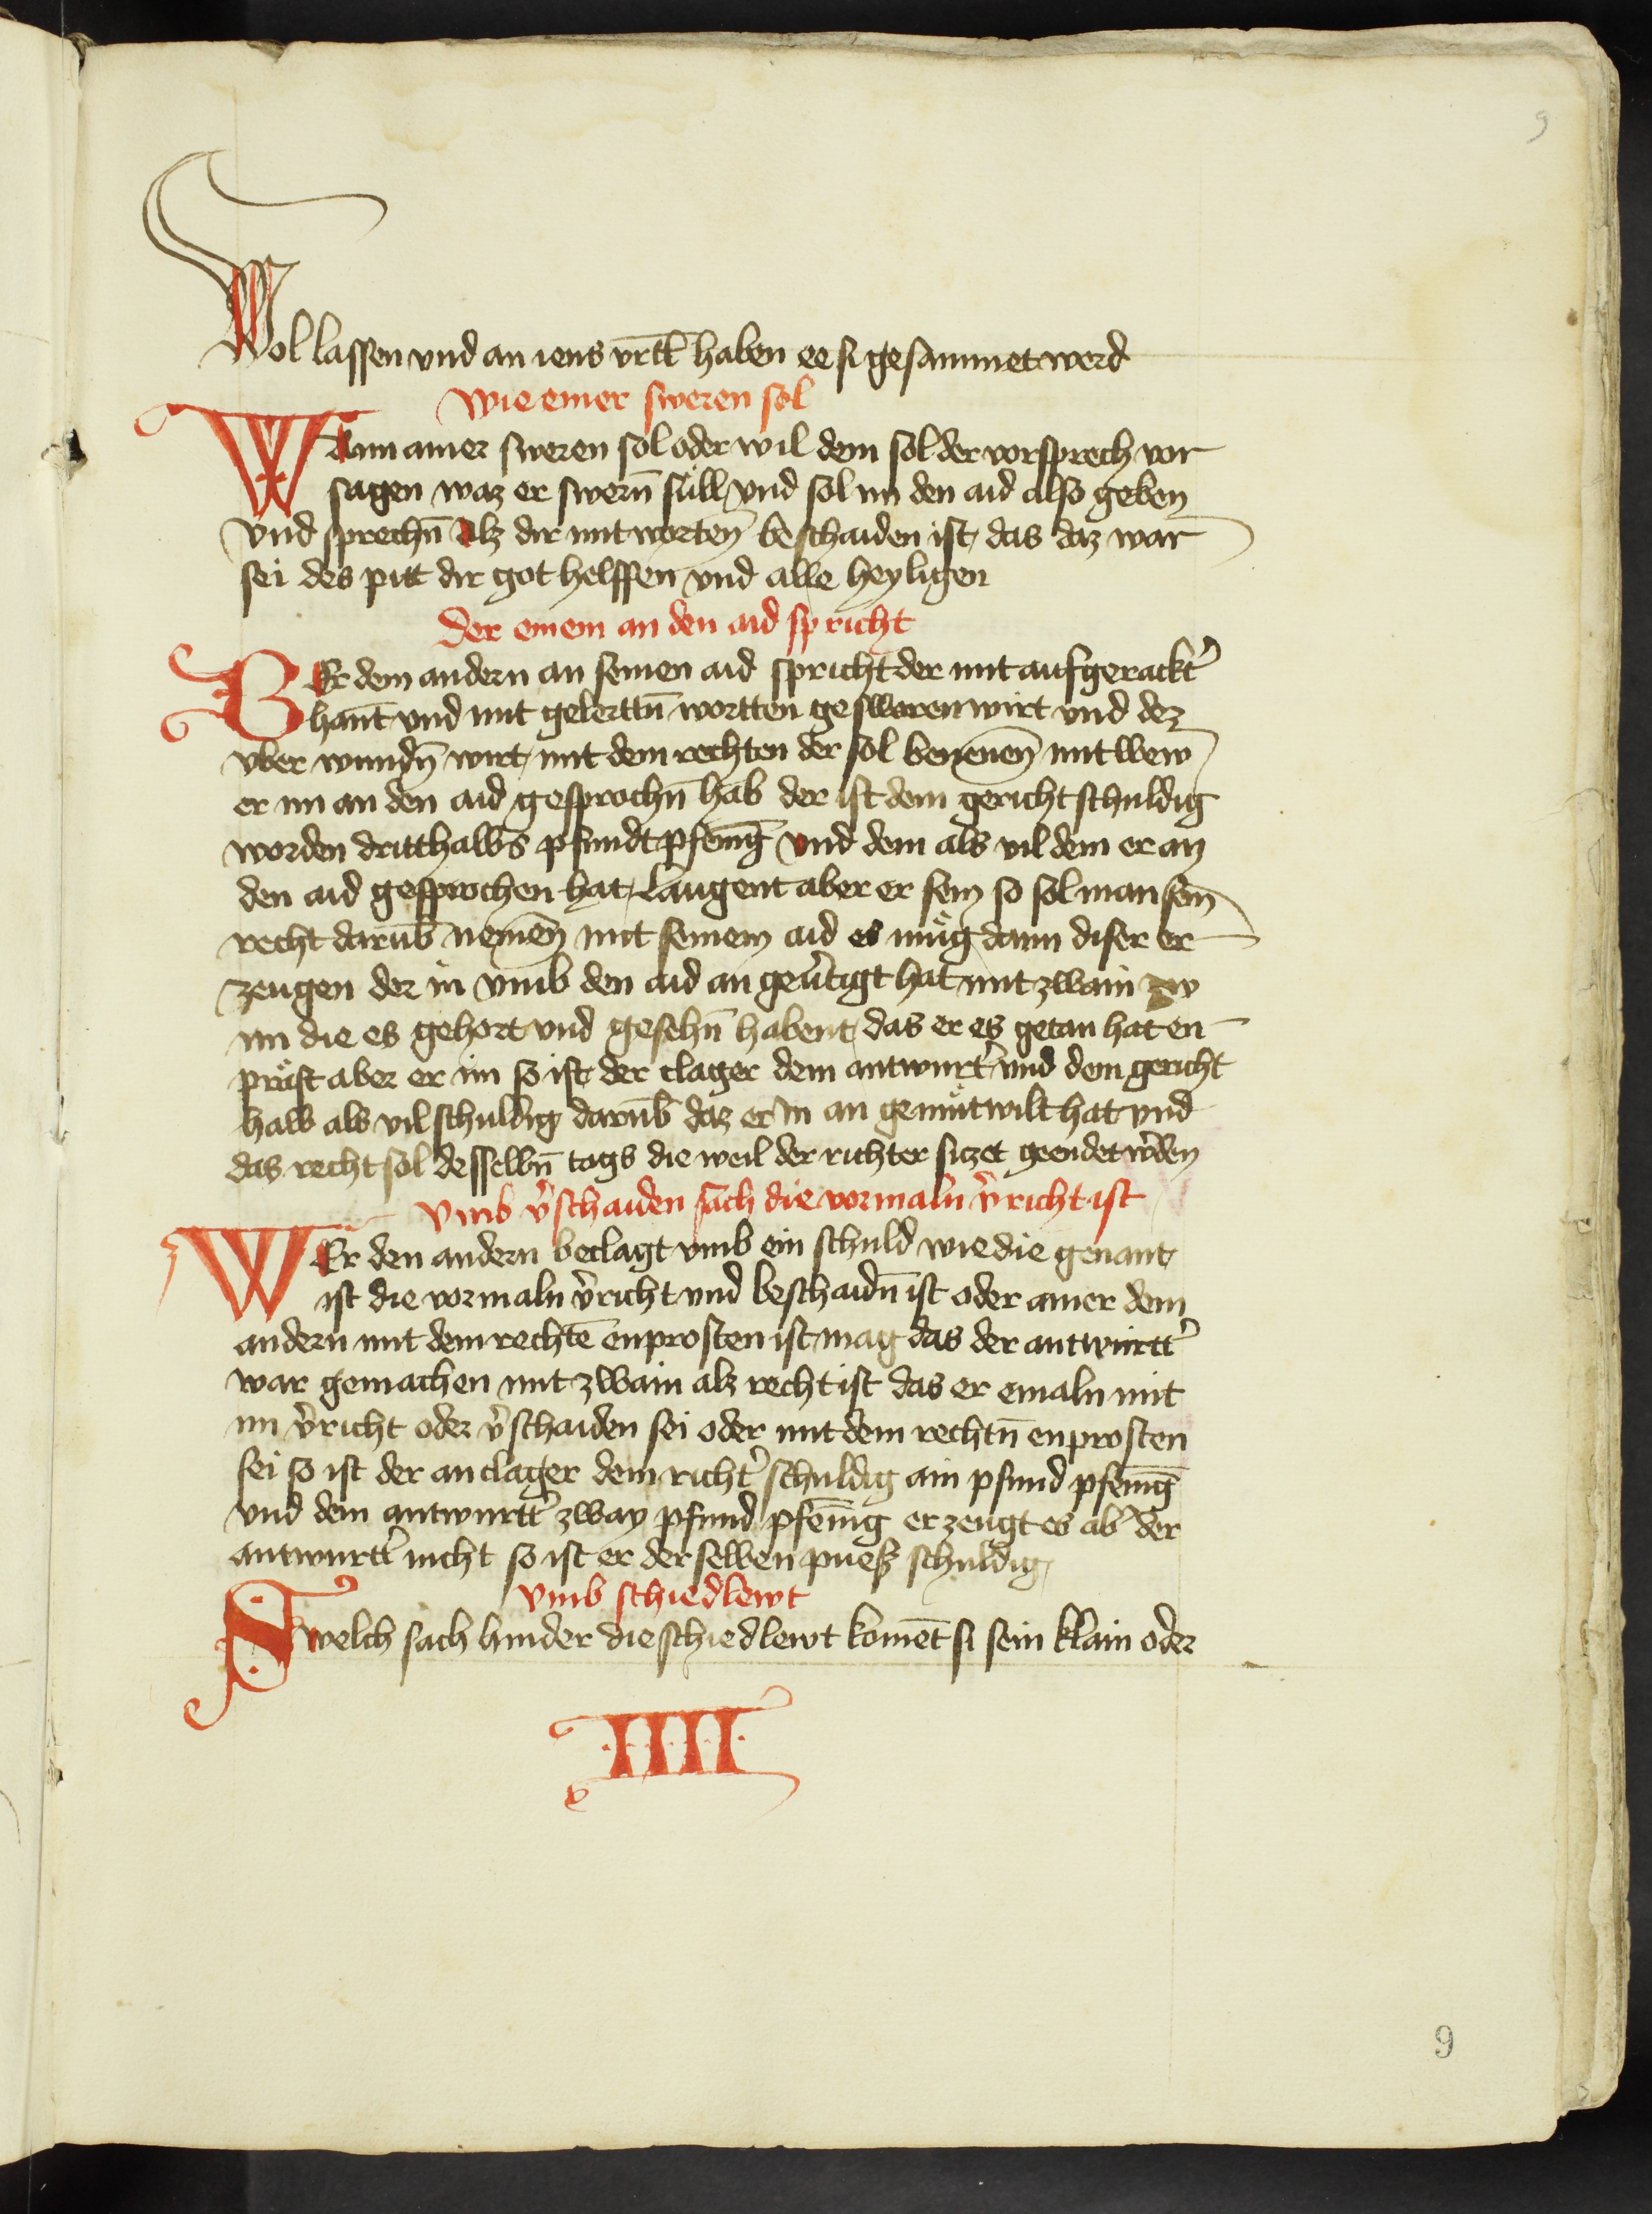 9
Wol lassen vnd an iens vrtt̄ haben ee si gesammet werd
Wie einer sweren sol
Wann ainer sweren sol oder wil dem sol der vorsprech vor
sagen waz er swern̄ süll vnd sol im den aid also geben
vnd sprechn̄ Alz dir mit worten beschaiden ist das daz war
sei des pitt dir got helffen vnd alle heyligen
Der einem an den aid spricht
Er dem andern an seinen aid spricht der mit aufgerackt̉
hant̄ vnd mit gelerttn̄ wortten gesworen wirt vnd dez
vber wundn̄ wirt mit dem rechten der sol benenen̄ mit wew
er im an den aid gesprochn̄ hab der ist dem gericht schuldig
worden dritthalbs pfundt pfeniḡ vnd dem als vil dem er an
den aid gesprochen hat Laugent aber er sein so sol man sein̄
recht darūb nemen̄ mit seinem aid es müg dann diser er
zeugen der in vmb den aid an geu̓tigt hat mit zwain zw
im die es gehort vnd gesehn̄ habent das er es getan hat en
präst aber er im so ist der clager dem antwurt̉ vnd dem gericht
halb als vil schuldig darūb daz er in an gemütwilt hat vnd
das recht sol desselbn̄ tags die weil der richter siczet geendet w̉den
Vmb v̉schaiden sach die vormaln v̉richt ist
WEr den andern beclagt vmb ein schuld wie die genant
ist die vormaln v̉richt vnd beschaidn̄ ist oder ainer dem
andern mit dem rechtē enprosten ist mag das der antwurtt̉
war gemachen mit zwain alz recht ist das er emaln mit
im v̉richt oder v̉schaiden sei oder mit dem rechtn̄ enprosten
sei so ist der anclager dem richt̉ schuldig ain pfund pfeniḡ
vnd dem antwurtt̉ zway pfund pfenīg erzeugt es ab̉ der
antwurtt̉ nicht so ist er der selben puess schuldig
Vmb schiedlewt
Swelch sach hinder die schiedlewt komēt si sein klain oder
·I·I·I·I·
9